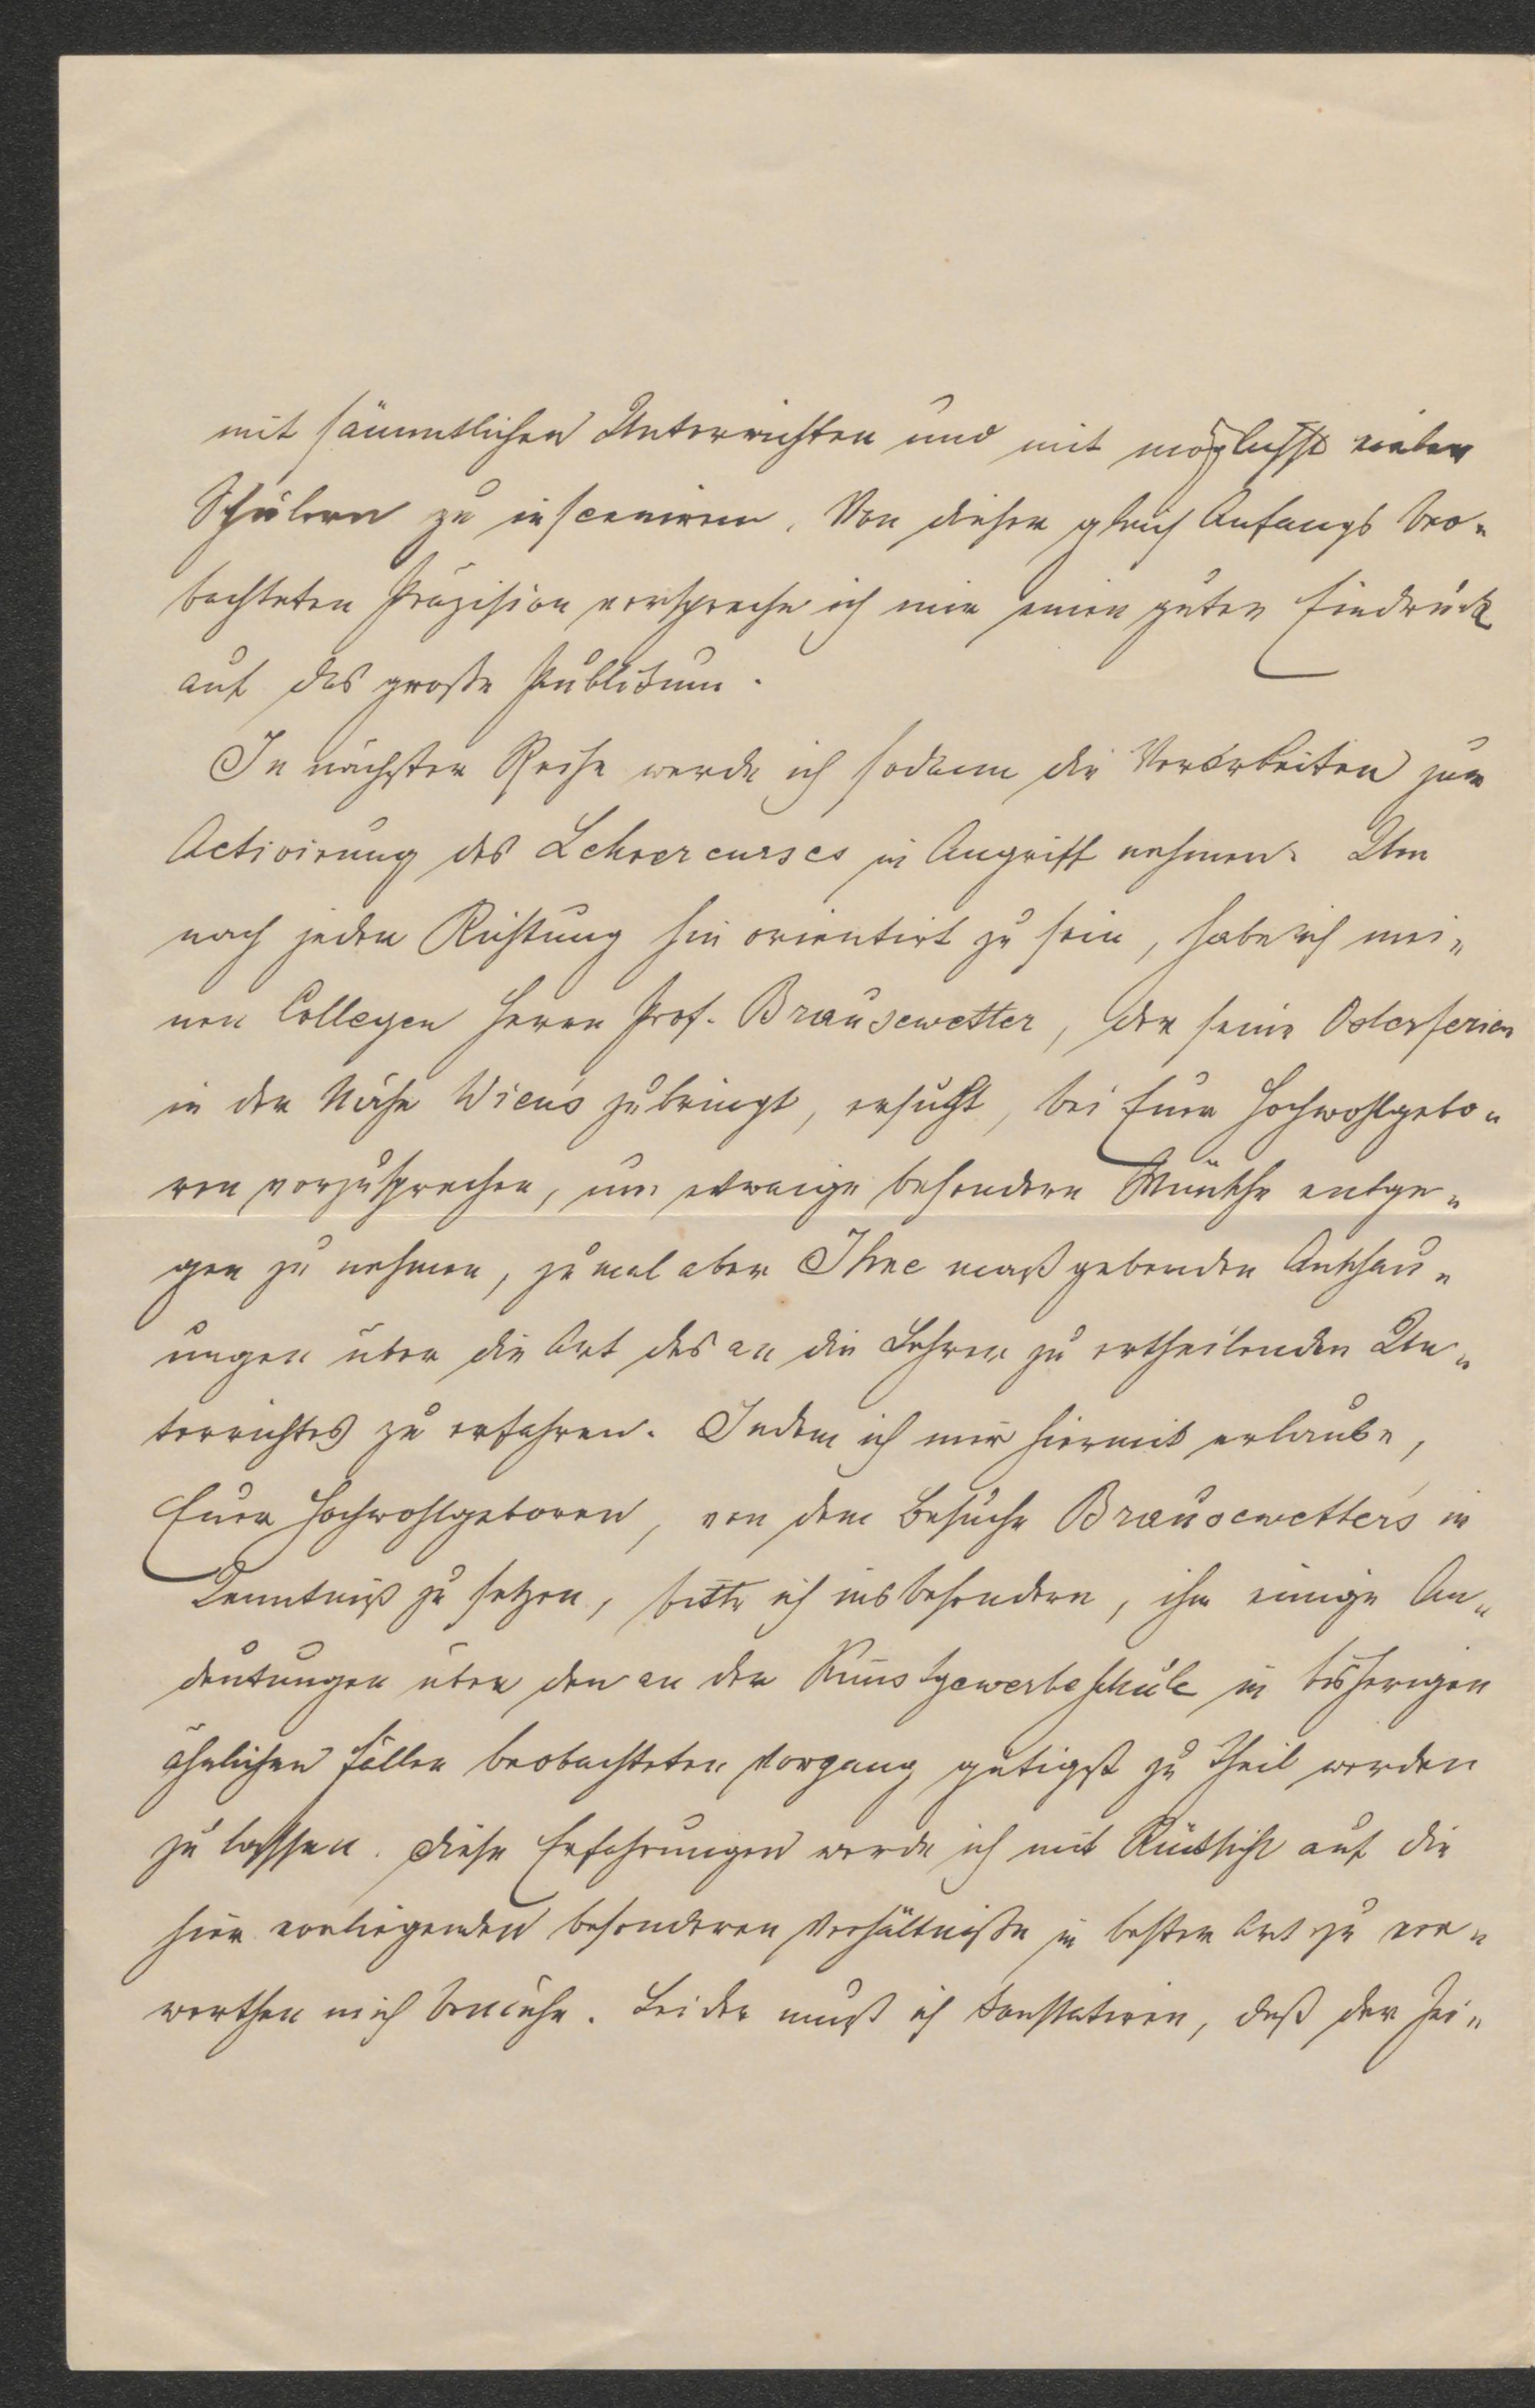 mit sämmtlichen Unterrichten und mit möglichst vielen
Schülern zu insceniren. Von dieser gleich Anfangs beo-
bachteten Präzision verspreche ich mir einen guten Eindruck
auf das große Publikum.
In nächster Reihe werde ich sodann die Vorarbeiten zur
Activirung des Lehrercurses in Angriff nehmen. Um
nach jeder Richtung hin orientirt zu sein, habe ich mei-
nen Collegen Herrn Prof. Brausewetter, der seine Osterferien
in der Nähe Wien's zubringt, ersucht, bei Euer Hochwohlgebo-
ren vorzusprechen, um etwaige besondere Wünsche entge-
gen zu nehmen, zumal aber Ihre maßgebenden Anschau-
ungen über die Art des an die Lehrer zu ertheilenden Un-
terrichtes zu erfahren. Indem ich mir hiermit erlaube,
Euer Hochwohlgeboren, von dem Besuche Brausewetter's in
Kenntniß zu setzen, bitte ich insbesondere, ihm einige An-
deutungen über den an der Kunstgewerbeschule in bisherigen
ähnlichen Fällen beobachteten Vorgang gütigst zu Theil werden
zu lassen. Diese Erfahrungen werde ich mit Rücksicht auf die
hier vorliegenden besonderen Verhältniße in bester Art zu ver-
werthen mich bemühe. Leider muß ich konstatiren, daß der Zei-